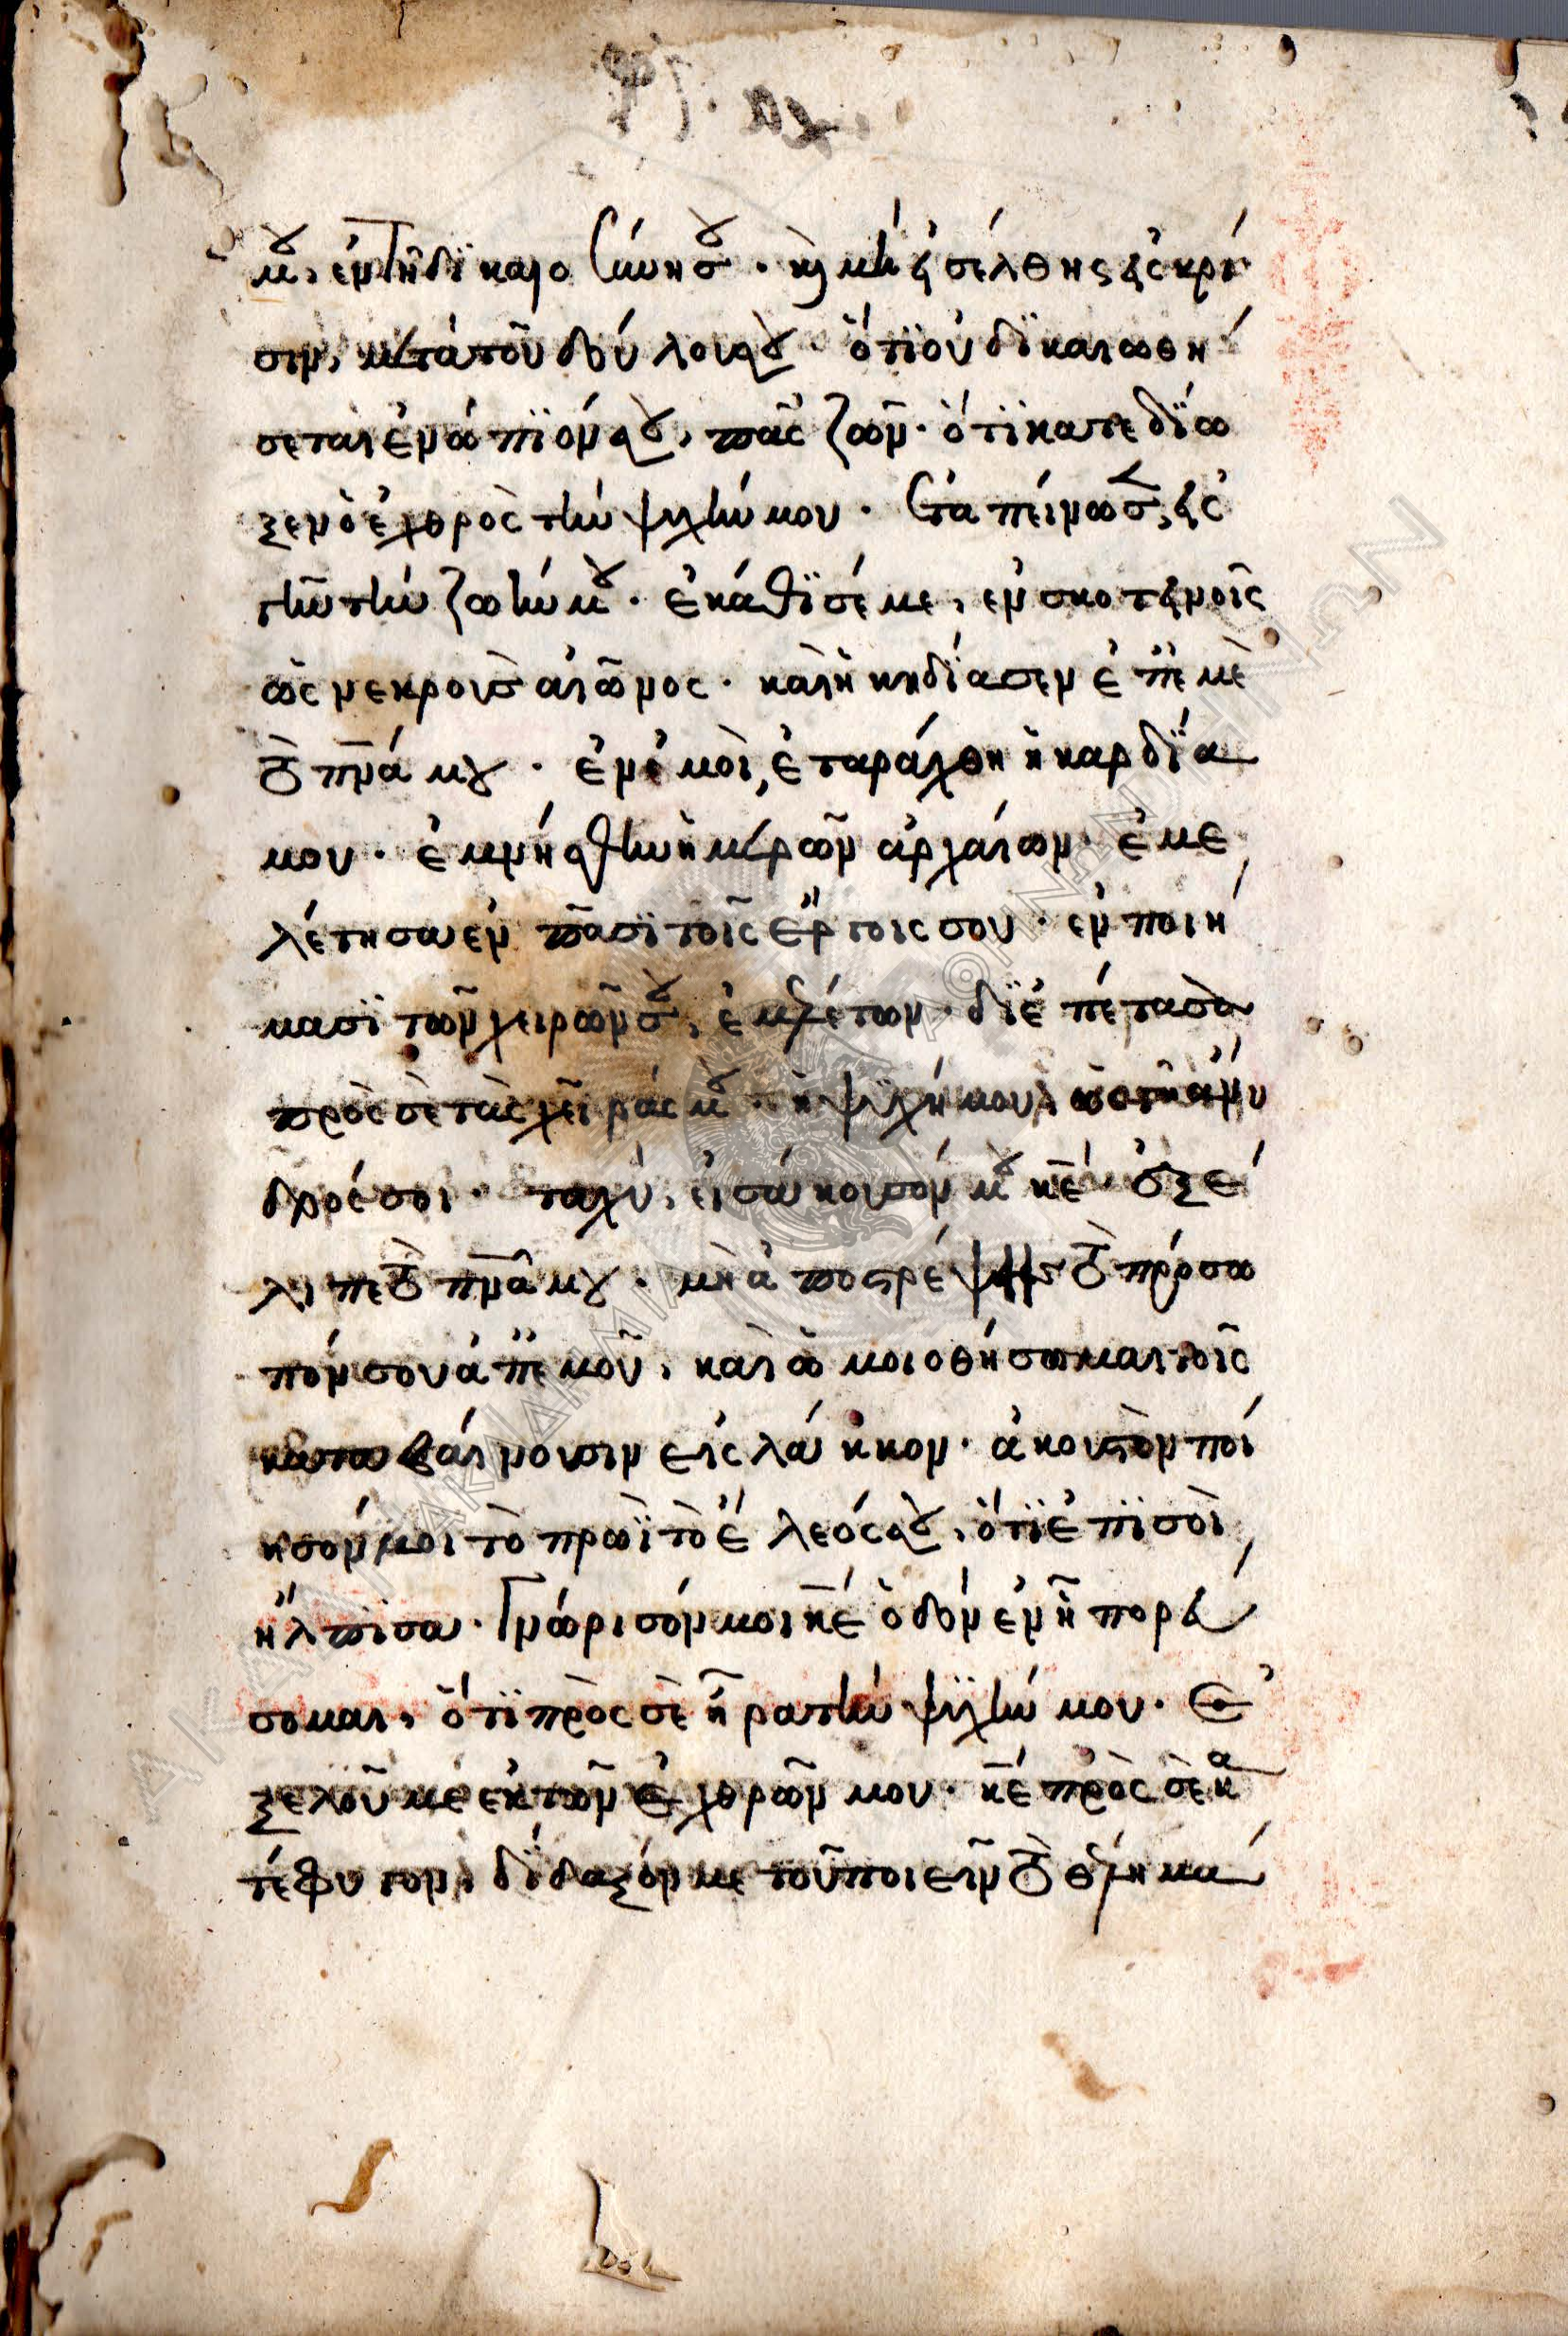 μου, ἐν τῆ δϊκαιοσύνη σου · καὶ μὴ εἰσέλθης εἰς κρί
σιν, μετὰ τοῦ δούλου σου · ὅτϊ οὐ δϊκαιωθή
σεται ἐνώπϊόν σου, πᾶς ζῶν · ὅτϊ κατεδΐω
ξεν ὁ ἐχθρὸς τὴν ψυχήν μου · ἐταπείνωσεν εἰς
γῆν τὴν ζωήν μου · ἐκάθϊσέ με, ἐν σκοτεινοῖς
ὡς νεκροὺς αἰῶνος · καὶ ἠκηδίασεν ἐπ' ἐμὲ
τὸ πνᾶ μου · ἐν ἐμοὶ, ἐταράχθη ἡ καρδΐα
μου · ἐμνήσθην ἡμερῶν ἀρχαίων · ἐμε
λέτησα ἐν πᾶσϊ τοῖς ἔργοις σου · ἐν ποιή
μασϊ τῶν χειρῶν σου, ἐμελέτων · δϊεπέτασα
πρὸς σὲ τὰς χεῖράς μου · ἡ ψυχή μου, ὡς γῆ ἄνυ
δρός σοι · ταχὺ, εἰσάκουσόν μου κε · ἐξέ
λιπε τὸ πνᾶ μου · μὴ ἀποστρέψης τὸ πρόσω
πόν σου ἀπ' ἐμοῦ, καὶ ὡμοιοθήσωμαι τοῖς
καταβαίνουσιν εἰς λάκκον · ἀκουστὸν ποί
ησόν μοι τὸ πρωῒ τὸ ἔλεός σου, ὅτϊ ἐπϊ σοὶ
ἤλπισα · Γνώρισόν μοι κε ὁδὸν ἐν ἧ πορεύ
σομαι, ὅτϊ πρὸς σὲ ἦρα τὴν ψυχήν μου · Ἐ
ξελοῦ με ἐκ τῶν ἐχθρῶν μου · κε πρὸς σὲ κα
τέφυγον, δΐδαξόν με τοῦ ποιεῖν τὸ θέλημά